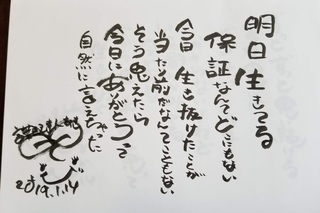 明日生きてる
保証なんてどこにもない
今日生き抜けたことが
当た前がなんてこともない
そう思えたら
今日にありがとうって
自然に言えちゃった
2019.1.14